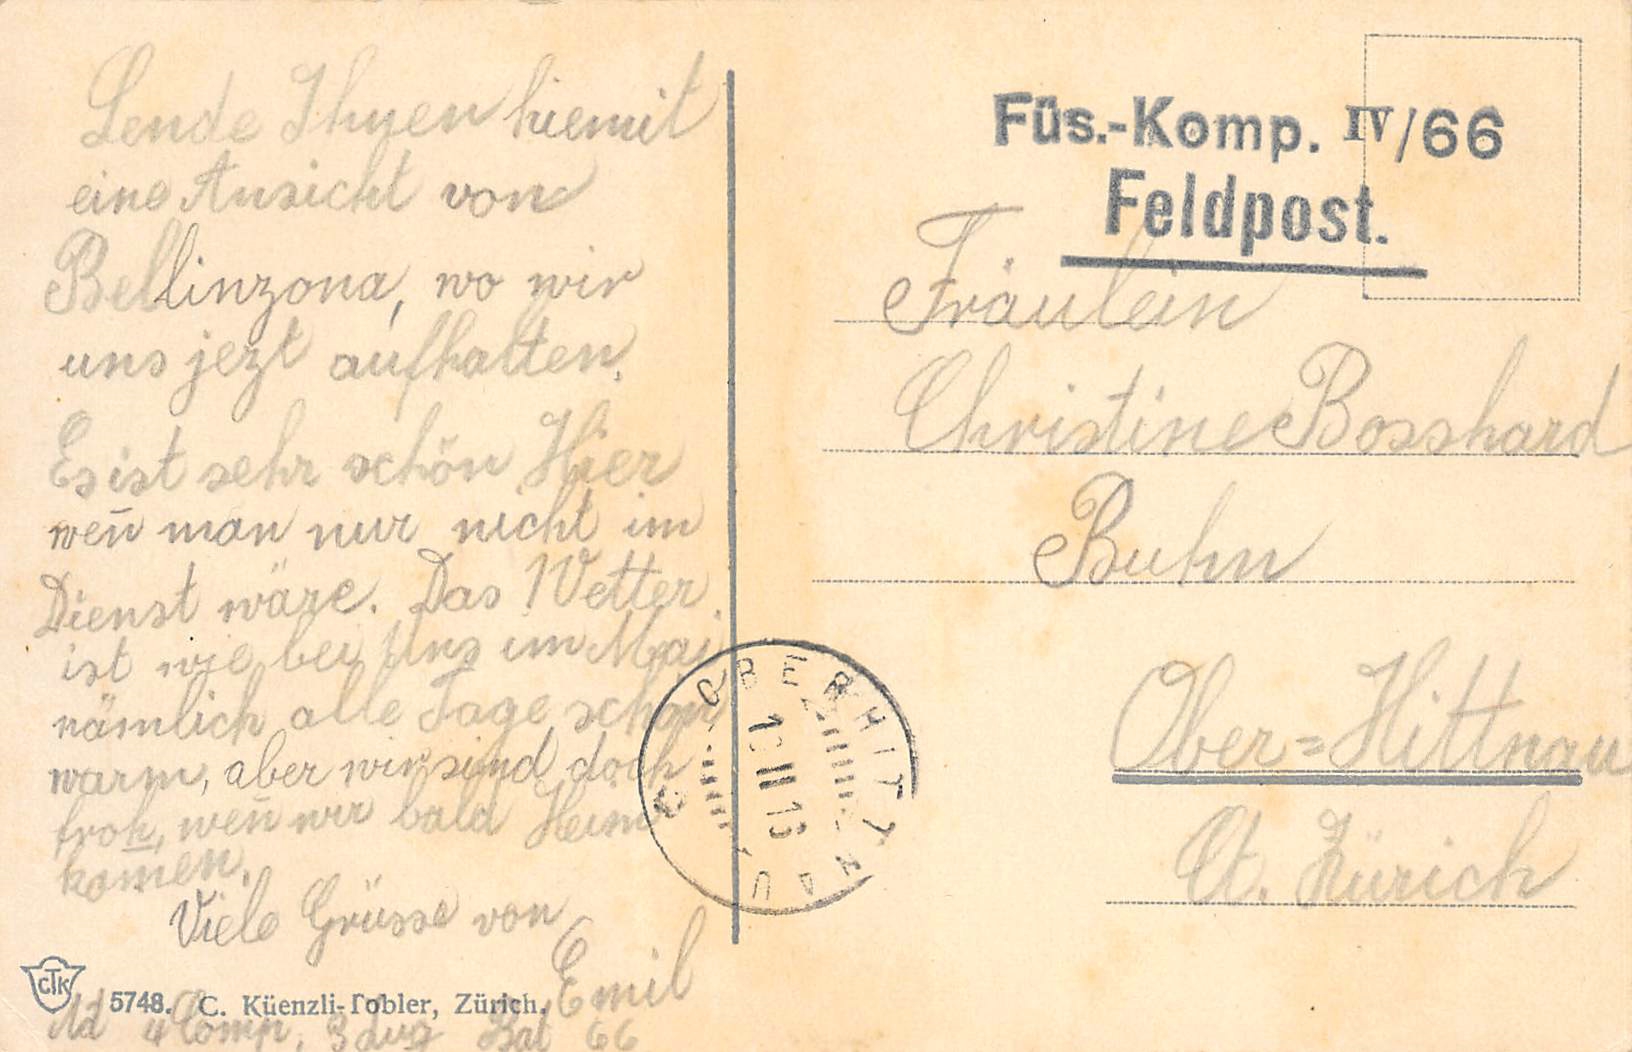 Sende Ihnen hiemit
eine Ansicht von
Bellinzona, wo wir
uns jezt aufhalten.
Es ist sehr schön Hier
weñ man nur nicht im
Dienst wäre. Das Wetter
ist wie bei Uns im Mai
nämlich alle Tage schön
warm, aber wir sind doch
froh, weñ wir bald Heim
kom̄en.
Viele Grüsse von
Emil
CTK
5748. C. Küenzli-Tobler, Zürich.
Ad 4 Comp, 3 Zug Bat 66
Füs.-Komp. IV/66
Feldpost.
Fräulein
Christine Bosshard
Buhn
Ober=Hittnau
Ct. Zürich
OBERHITTNAU